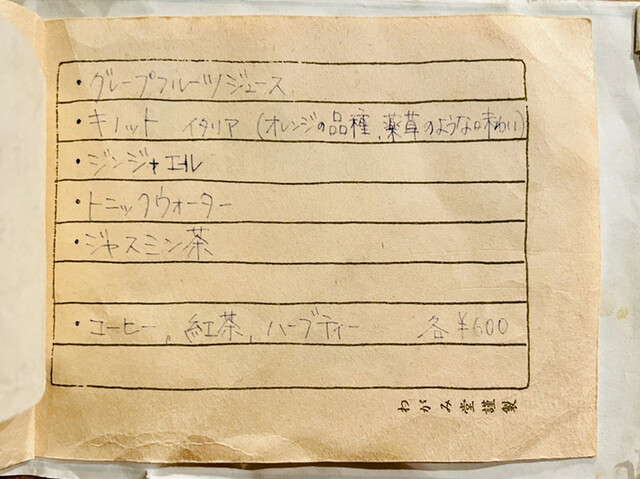 ・グレープフルーツジュース
・キノット イタリア (オレンジの品種、薬草のような味わい)
・ジンジャエール
・トニックウォーター
・ジャスミン茶
・コーヒー、紅茶、ハーブティー 各¥600
わがみ堂謹製